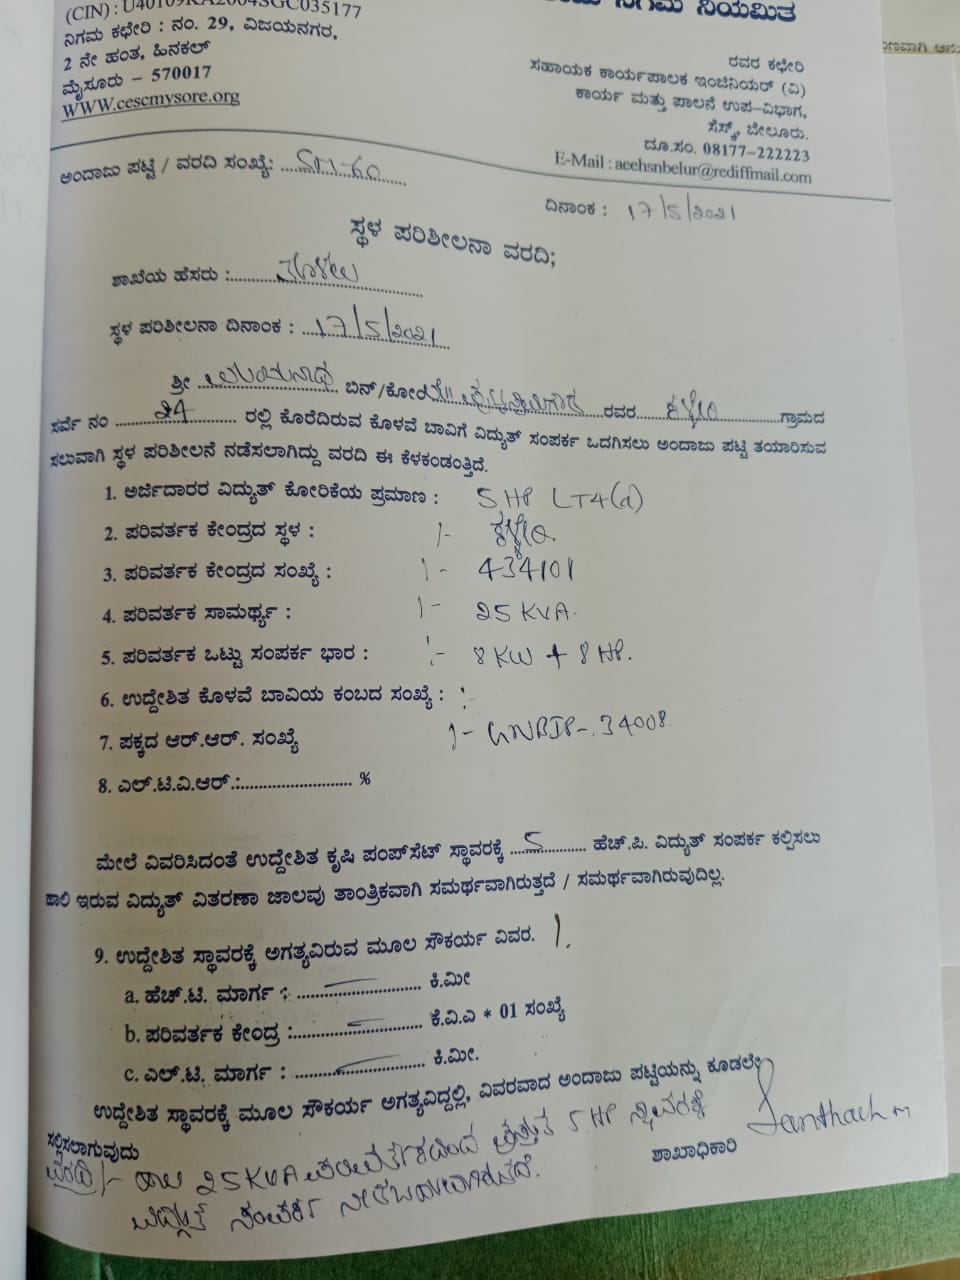 (CIN) : U40109KA2004SGC035177
ನಿಗಮ ನಿಯಮಿತ
ನಿಗಮ ಕಛೇರಿ : ನಂ. 29, ವಿಜಯನಗರ,
2 ನೇ ಹಂತ, ಹಿನಕಲ್
ಮೈಸೂರು – 570017
WWW.cescmysore.org
ರವರ ಕಛೇರಿ
ಸಹಾಯಕ ಕಾರ್ಯಪಾಲಕ ಇಂಜಿನಿಯರ್ (ವಿ)
ಕಾರ್ಯ ಮತ್ತು ಪಾಲನೆ ಉಪ-ವಿಭಾಗ,
ಸೆಸ್ಕ್, ಬೇಲೂರು.
ದೂ.ಸಂ. 08177-222223
E-Mail : aeehsnbelur@rediffmail.com
ಅಂದಾಜು ಪಟ್ಟಿ / ವರದಿ ಸಂಖ್ಯೆ:
ದಿನಾಂಕ : 17/5/2021
ಸ್ಥಳ ಪರಿಶೀಲನಾ ವರದಿ;
ಶಾಖೆಯ ಹೆಸರು :
ಸ್ಥಳ ಪರಿಶೀಲನಾ ದಿನಾಂಕ : 17/5/2021
ಶ್ರೀ ಬಿನ್/ಕೋಂ ರವರ ಕಳ್ಳೇರಿ ಗ್ರಾಮದ
ಸರ್ವೆ ನಂ 24 ರಲ್ಲಿ ಕೊರೆದಿರುವ ಕೊಳವೆ ಬಾವಿಗೆ ವಿದ್ಯುತ್ ಸಂಪರ್ಕ ಒದಗಿಸಲು ಅಂದಾಜು ಪಟ್ಟಿ ತಯಾರಿಸುವ
ಸಲುವಾಗಿ ಸ್ಥಳ ಪರಿಶೀಲನೆ ನಡೆಸಲಾಗಿದ್ದು ವರದಿ ಈ ಕೆಳಕಂಡಂತ್ತಿದೆ.
1. ಅರ್ಜಿದಾರರ ವಿದ್ಯುತ್ ಕೋರಿಕೆಯ ಪ್ರಮಾಣ : 5 HP LT4(a)
2. ಪರಿವರ್ತಕ ಕೇಂದ್ರದ ಸ್ಥಳ : :- ಕಳ್ಳೇರಿ.
3. ಪರಿವರ್ತಕ ಕೇಂದ್ರದ ಸಂಖ್ಯೆ : :- 434101
4. ಪರಿವರ್ತಕ ಸಾಮರ್ಥ್ಯ : :- 25 KVA.
5. ಪರಿವರ್ತಕ ಒಟ್ಟು ಸಂಪರ್ಕ ಭಾರ : :- 8 KW + 8 HP.
6. ಉದ್ದೇಶಿತ ಕೊಳವೆ ಬಾವಿಯ ಕಂಬದ ಸಂಖ್ಯೆ : :
7. ಪಕ್ಕದ ಆರ್.ಆರ್. ಸಂಖ್ಯೆ :- 34008
8. ಎಲ್.ಟಿ.ವಿ.ಆರ್.:.......................... %
ಮೇಲೆ ವಿವರಿಸಿದಂತೆ ಉದ್ದೇಶಿತ ಕೃಷಿ ಪಂಪ್‌ಸೆಟ್ ಸ್ಥಾವರಕ್ಕೆ 5 ಹೆಚ್.ಪಿ. ವಿದ್ಯುತ್ ಸಂಪರ್ಕ ಕಲ್ಪಿಸಲು
ಹಾಲಿ ಇರುವ ವಿದ್ಯುತ್ ವಿತರಣಾ ಜಾಲವು ತಾಂತ್ರಿಕವಾಗಿ ಸಮರ್ಥವಾಗಿರುತ್ತದೆ / ಸಮರ್ಥವಾಗಿರುವುದಿಲ್ಲ.
9. ಉದ್ದೇಶಿತ ಸ್ಥಾವರಕ್ಕೆ ಅಗತ್ಯವಿರುವ ಮೂಲ ಸೌಕರ್ಯ ವಿವರ.
a. ಹೆಚ್.ಟಿ. ಮಾರ್ಗ : ............................ ಕಿ.ಮೀ
b. ಪರಿವರ್ತಕ ಕೇಂದ್ರ :............................. ಕೆ.ವಿ.ಎ * 01 ಸಂಖ್ಯೆ
c. ಎಲ್.ಟಿ. ಮಾರ್ಗ : ............................. ಕಿ.ಮೀ.
ಉದ್ದೇಶಿತ ಸ್ಥಾವರಕ್ಕೆ ಮೂಲ ಸೌಕರ್ಯ ಅಗತ್ಯವಿದ್ದಲ್ಲಿ, ವಿವರವಾದ ಅಂದಾಜು ಪಟ್ಟಿಯನ್ನು ಕೂಡಲೇ
ಸಲ್ಲಿಸಲಾಗುವುದು
ಶಾಖಾಧಿಕಾರಿ
ವರದಿ :- ಹಾಲಿ 25 KVA ಪರಿವರ್ತಕದಿಂದ ಪ್ರಸ್ತುತ 5 HP ಸ್ಥಾವರಕ್ಕೆ
ವಿದ್ಯುತ್ ಸಂಪರ್ಕ ನೀಡಬಹುದಾಗಿರುತ್ತದೆ.